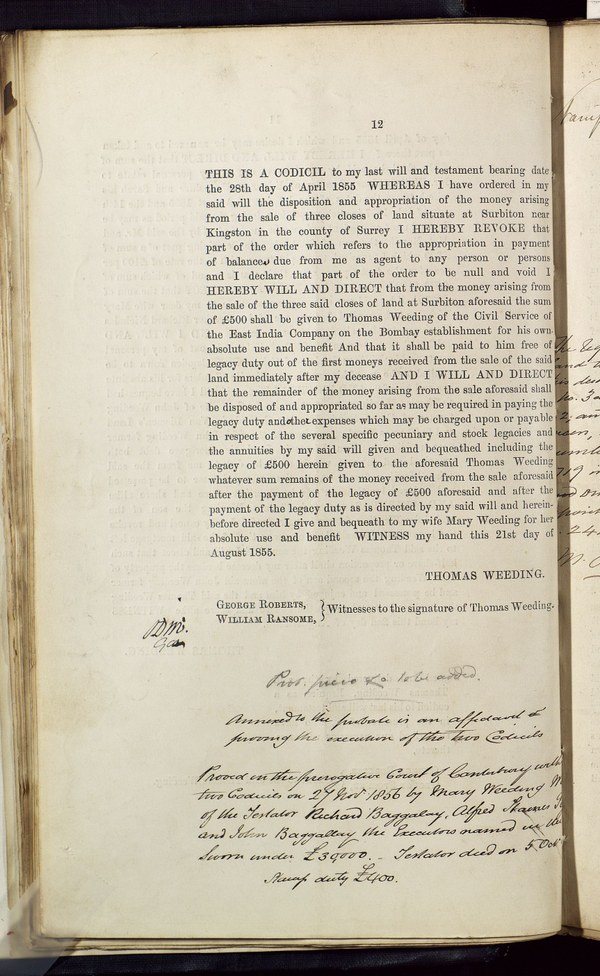 12
THIS IS A CODICIL to my last will and testament bearing date
the 28th day of April 1855 WHEREAS I have ordered in my
said will the disposition and appropriation of the money arising
from the sale of three closes of land situate at Surbiton near
Kingston in the county of Surrey I HEREBY REVOKE that
part of the order which refers to the appropriation in payment
of balances due from me as agent to any person or persons
and I declare that part of the order to be null and void I
HEREBY WILL AND DIRECT that from the money arising from
the sale of the three said closes of land at Surbiton aforesaid the sum
of £500 shall be given to Thomas Weeding of the Civil Service of
the East India Company on the Bombay establishment for his own
absolute use and benefit And that it shall be paid to him free of
legacy duty out of the first moneys received from the sale of the said
land immediately after my decease AND I WILL AND DIRECT
that the remainder of the money arising from the sale aforesaid shall
be disposed of and appropriated so far as may be required in paying the
legacy duty and other expenses which may be charged upon or payable
in respect of the several specific pecuniary and stock legacies and
the annuities by my said will given and bequeathed including the
legacy of £500 herein given to the aforesaid Thomas Weeding
whatever sum remains of the money received from the sale aforesaid
after the payment of the legacy of £500 aforesaid and after the
payment of the legacy duty as is directed by my said will and herein-
before directed I give and bequeath to my wife Mary Weeding for her
absolute use and benefit WITNESS my hand this 21st day of
August 1855.
THOMAS WEEDING.
GEORGE ROBERTS,
WILLIAM RANSOME, } Witnesses to the signature of Thomas Weeding.
to be added.
Annexed to the probate is an affidavit
proving the execution of the two Codicils
Proved in the prerogative Court of Canterbury with
two Codicils on 27 Nov 1856 by Mary Weeding
of the Testator Richard Baggallay, Alfred Thames
and John Baggallay the Executors named in the
Sworn under £39000. - Testator died on 5 Oct
Stamp duty £400.